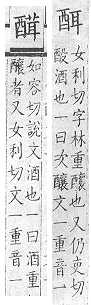 女利切字林重釀也又仍吏切
酘酒也一曰次釀文一重音一
如容切說文酒也一曰酒重
釀者又女利切文一重音一